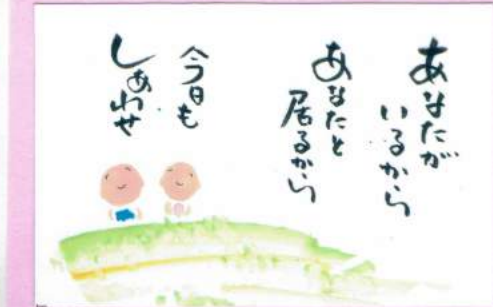 あなたが
いるから
あなたと
居るから
今日も
しあわせ